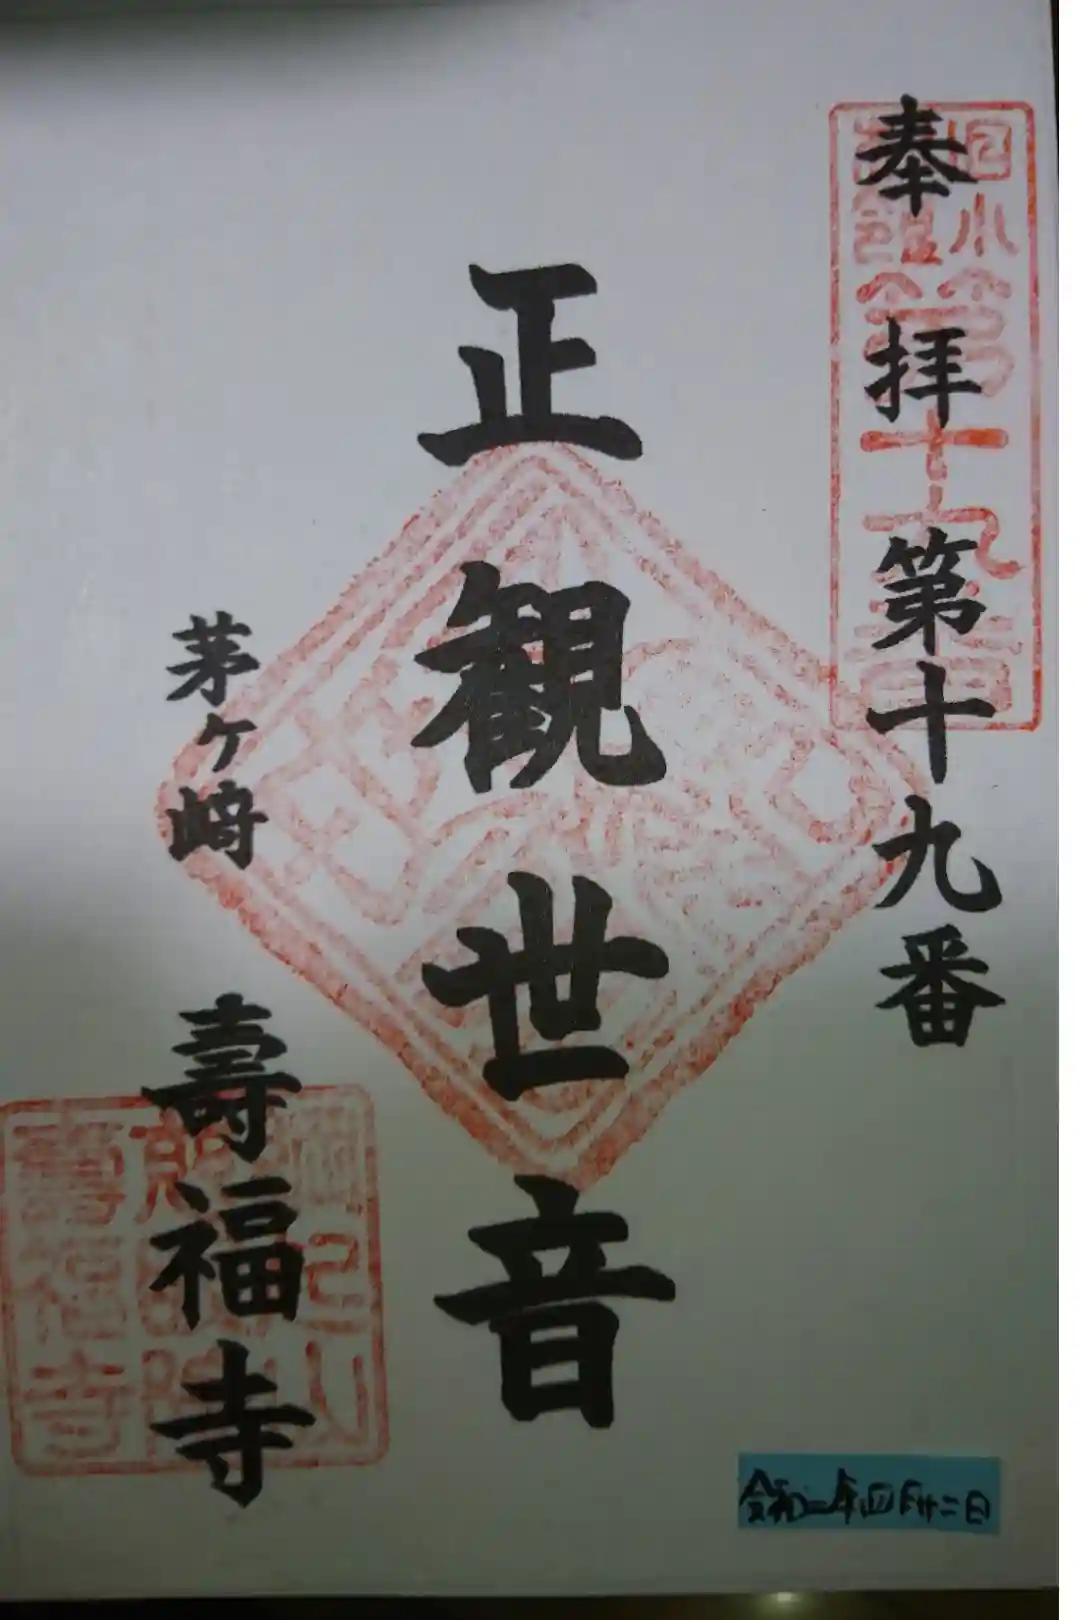 奉拝 第十九番
正観世音
茅ヶ﨑 壽福寺
令和二年四月廿二日